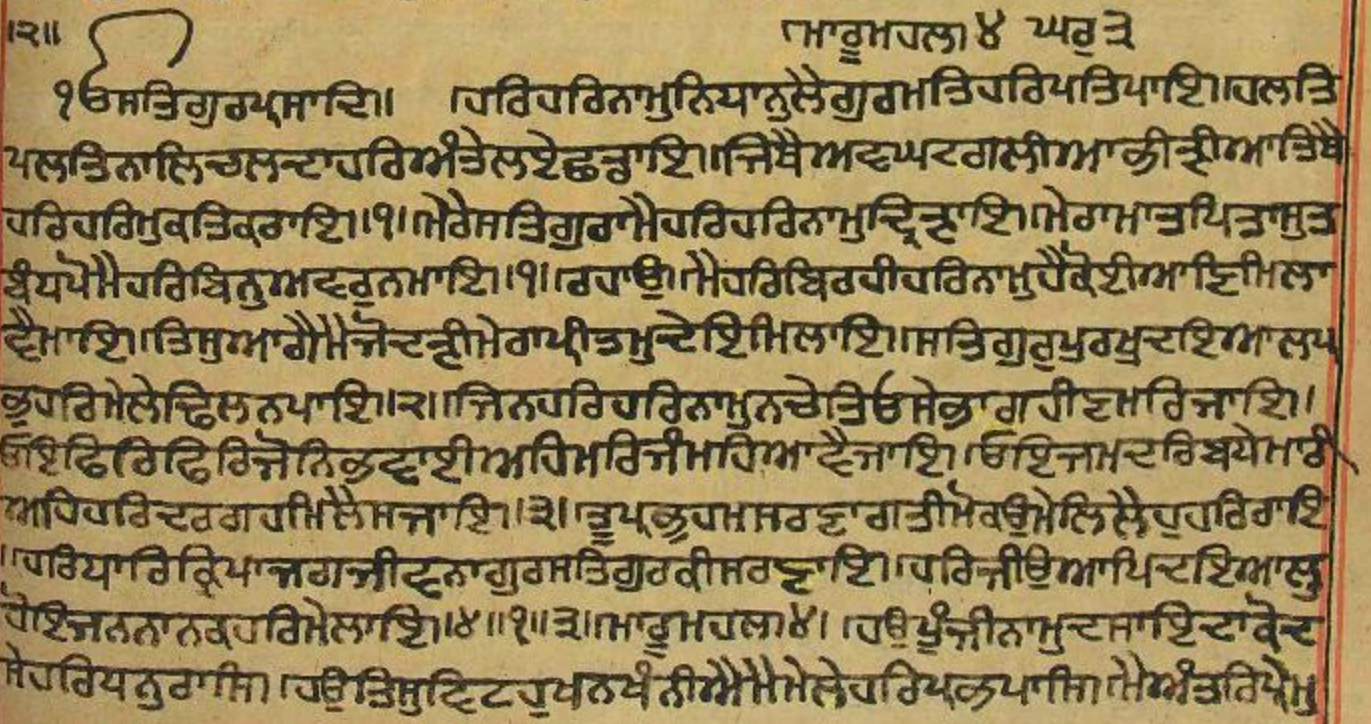 ॥੨॥ ਮਾਰੂਮਹਲਾ ੪ ਘਰੁ ੩
੧ਓਸਤਿਗੁਰਪ੍ਰਸਾਦਿ॥ ।ਹਰਿਹਰਿਨਾਮੁਨਿਧਾਨੁਲੈਗੁਰਮਤਿਹਰਿਪਤਿਪਾਇ॥ਹਲਤਿ
ਪਲਤਿਨਾਲਿਚਲਦਾਹਰਿਅੰਤੇਲਏਛਡਾਇ॥ਜਿਥੈਅਵਘਟਗਲੀਆਭੀੜੀਆਤਿਥੈ
ਹਰਿਹਰਿਮੁਕਤਿਕਰਾਇ॥੧॥ਮੇਰੇਸਤਿਗੁਰਾਮੈਹਰਿਹਰਿਨਾਮੁਦ੍ਰਿੜਾਇ॥ਮੇਰਾਮਾਤਪਿਤਾਸੁਤ
ਬੰਧਪੋਮੈਹਰਿਬਿਨੁਅਵਰੁਨਮਾਇ॥੧॥ਰਹਾਉ॥ਮੈਹਰਿਬਿਰਹੀਹਰਿਨਾਮੁਹੈਕੋਈਆਣਿਮਿਲਾ
ਵੈਮਾਇ॥ਤਿਸੁਆਗੈਮੈਜੋਦੜੀਮੇਰਾਪ੍ਰੀਤਮੁਦੇਇਮਿਲਾਇ॥ਸਤਿਗੁਰੁਪੁਰਖੁਦਇਆਲਪ੍ਰ
ਭੁਹਰਿਮੇਲੇਢਿਲਨਪਾਇ॥੨॥ਜਿਨਹਰਿਹਰਿਨਾਮੁਨਚੇਤਿਓਸੇਭਾਗਹੀਣਮਰਿਜਾਇ॥
ਓਇਫਿਰਿਫਿਰਿਜੋਨਿਭਵਾਈਅਹਿਮਰਿਜੰਮਹਿਆਵੈਜਾਇ॥ਓਇਜਮਦਰਿਬਧੇਮਾਰੀ
ਅਹਿਹਰਿਦਰਗਹਮਿਲੈਸਜਾਇ॥੩॥ਤੂਪ੍ਰਭੁਹਮਸਰਣਾਗਤੀਮੋਕਉਮੇਲਿਲੈਹੁਹਰਿਰਾਇ
॥ਹਰਿਧਾਰਿਕ੍ਰਿਪਾਜਗਜੀਵਨਾਗੁਰਸਤਿਗੁਰਕੀਸਰਣਾਇ॥ਹਰਿਜੀਉਆਪਿਦਇਆਲੁ
ਹੋਇਜਨਨਾਨਕਹਰਿਮੇਲਾਇ॥੪॥੧॥੩॥ਮਾਰੂਮਹਲਾ੪॥ ।ਹਉਪੂੰਜੀਨਾਮੁਦਸਾਇਦਾਕੋਦ
ਸੇਹਰਿਧਨੁਰਾਸਿ॥ ।ਹਉਤਿਸੁਵਿਟਹੁਖਨਖੰਨੀਐਮੈਮੇਲੇਹਰਿਪ੍ਰਭਪਾਸਿ॥ਮੈਅੰਤਰਿਪ੍ਰੇਮੁ